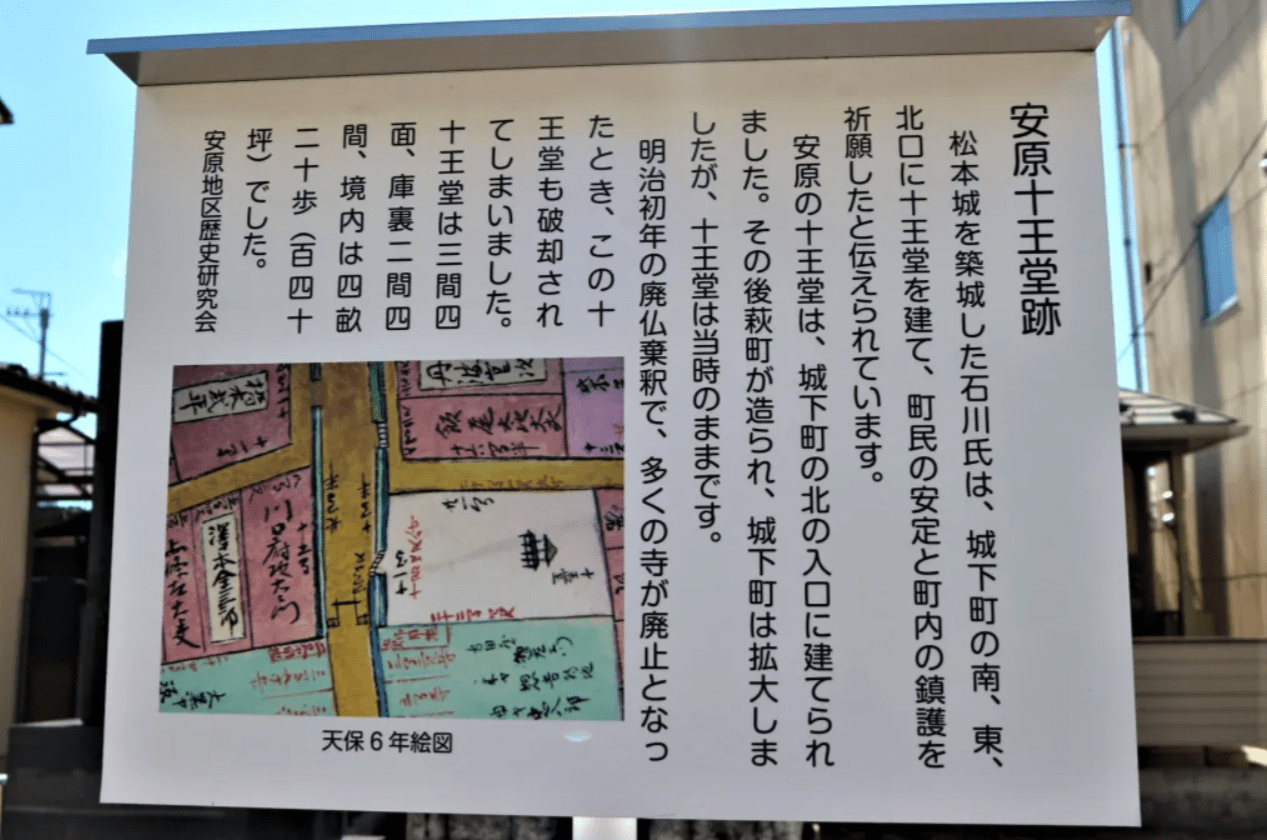 安原十王堂跡
松本城を築城した石川氏は、城下町の南、東、
北口に十王堂を建て、町民の安定と町内の鎮護を
祈願したと伝えられています。
安原の十王堂は、城下町の北の入口に建てられ
ました。その後萩町が造られ、城下町は拡大しま
したが、十王堂は当時のままです。
明治初年の廃仏棄釈で、多くの寺が廃止となっ
たとき、この十
王堂も破却され
てしまいました。
十王堂は三間四
面、庫裏二間四
間、境内は四畝
二十歩（百四十
坪）でした。
安原地区歴史研究会
天保6年絵図